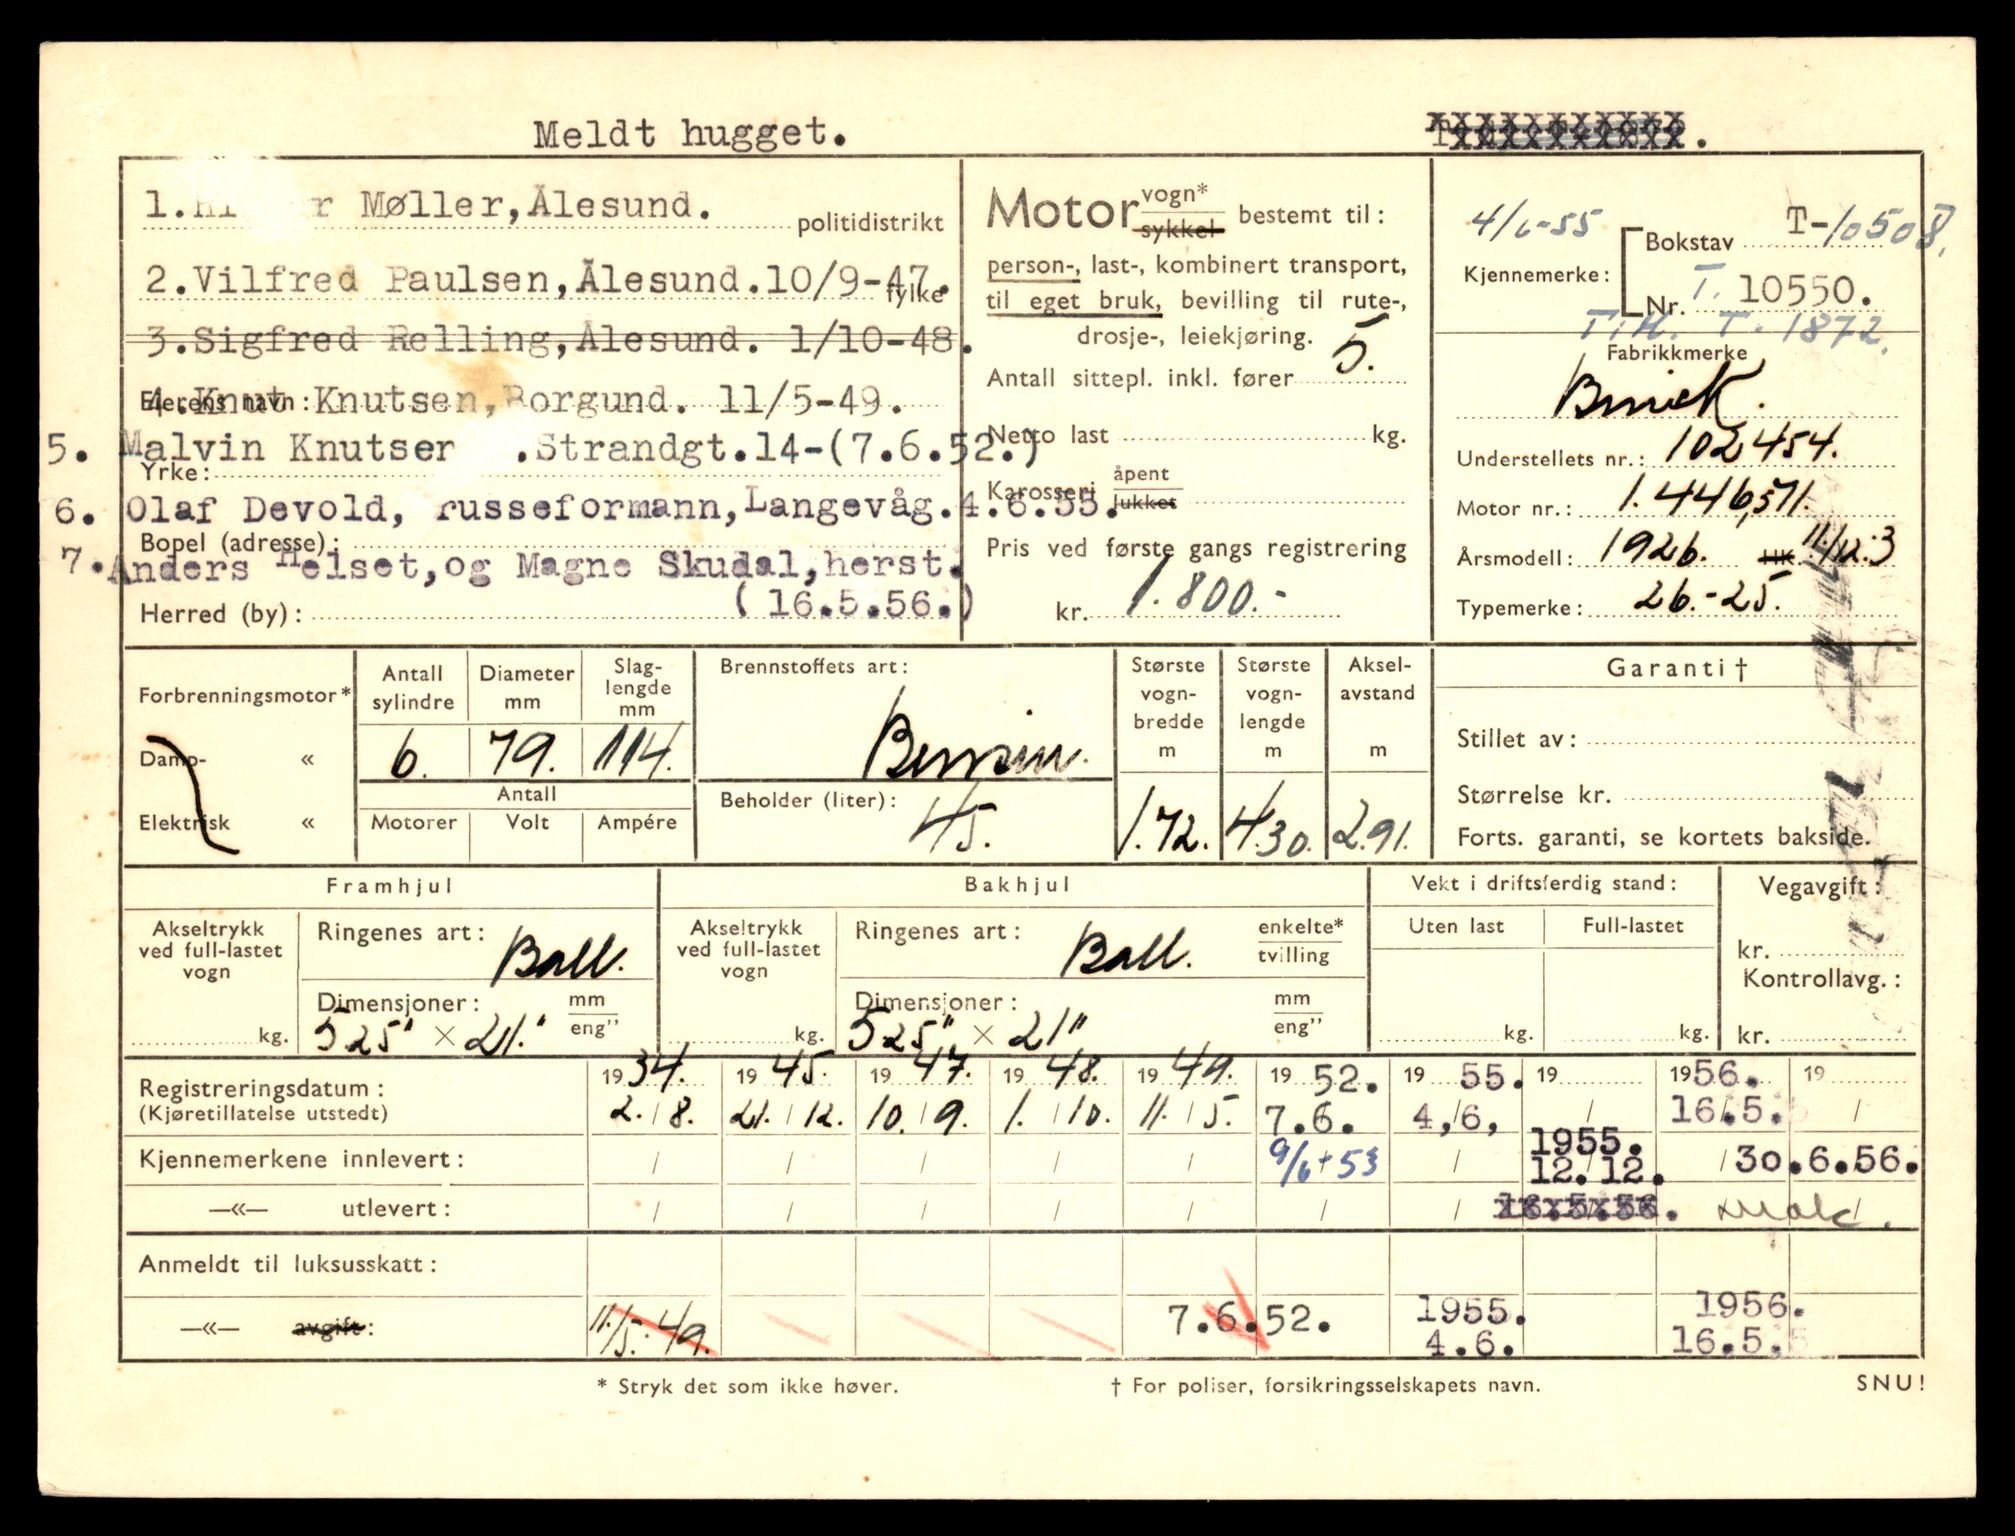 Meldt hugget.
1. Møller, Ålesund.
politidistrikt
2. Vilfred Paulsen, Ålesund. 10/9-47.
fylke
3. Sigfred Relling, Ålesund. 1/10-48.
Eierens navn:
4. Knut Knutsen, Borgund. 11/5-49.
5. Malvin Knutsen .Strandgt.14-(7.6.52.)
Yrke:
6. Olaf Devold, russeformann, Langevåg. 4.6.55.
Bopel (adresse):
7. Anders Helset, og Magne Skudal, herst.
(16.5.56.)
Herred (by):
Motor vogn* sykkel bestemt til:
person-, last-, kombinert transport,
til eget bruk, bevilling til rute-,
drosje-, leiekjøring.
Antall sittepl. inkl. fører 5.
Netto last kg.
Karosseri åpent lukket
Pris ved første gangs registrering
kr. 1.800.-
4/6-55 Bokstav T-10508.
Kjennemerke:
Nr. T. 10550.
T.H. T. 1872.
Fabrikkmerke
Buick.
Understellets nr.: 102454.
Motor nr.: 1.446,571.
Årsmodell: 1926. HK 11/12.3
Typemerke: 26.-25.
Forbrenningsmotor*
Damp- «
Elektrisk «
Antall sylindre 6.
Diameter mm 79.
Slag-lengde mm 114.
Antall
Motorer Volt Ampére
Brennstoffets art:
Bensin.
Beholder (liter): 45.
Største vogn-bredde m 1.72.
Største vogn-lengde m 4.30.
Aksel-avstand m 2.91.
Garanti †
Stillet av:
Størrelse kr.
Forts. garanti, se kortets bakside.
Framhjul
Akseltrykk ved full-lastet vogn
kg.
Ringenes art: Ball.
Dimensjoner: mm eng"
525" × 21."
Bakhjul
Akseltrykk ved full-lastet vogn
kg.
Ringenes art: Ball. enkelte* tvilling
Dimensjoner: mm eng"
525" × 21"
Vekt i driftsferdig stand:
Uten last Full-lastet
kg. kg.
Vegavgift:
kr.
Kontrollavg.:
kr.
Registreringsdatum: 1934. 1945. 1947. 1948. 1949. 1952. 1955. 19 1956. 19
(Kjøretillatelse utstedt) 2./8. 21./12. 10./9. 1./10. 11./5. 7.6. 4,6, / 16.5. /
Kjennemerkene innlevert: / / / / / 9/6+53 / 1955. 12.12. / 30.6.56.
—«— utlevert: / / / / / / / 16.5.56. /
Anmeldt til luksusskatt:
—«— avgift: 11./5.-49. 7.6.52. 1955. 4.6. 1956. 16.5.
* Stryk det som ikke høver.
† For poliser, forsikringsselskapets navn.
SNU!